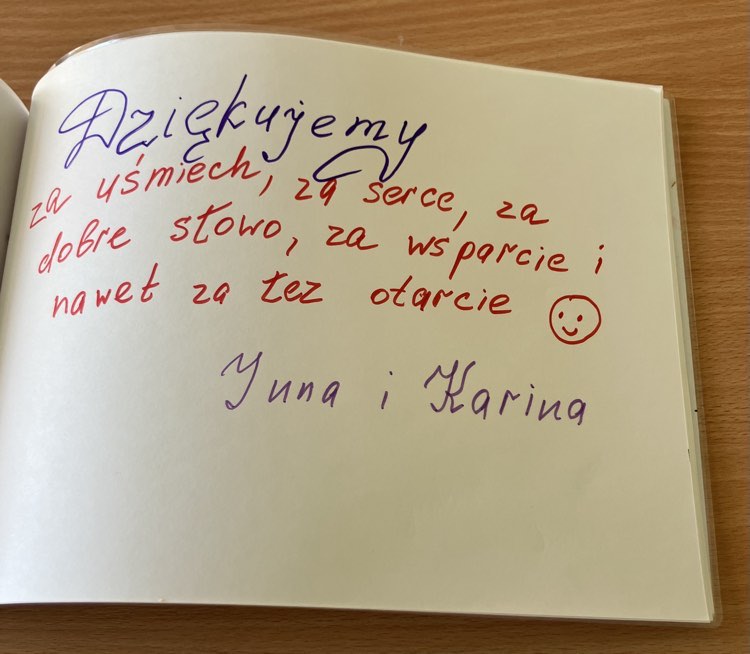 Dziękujemy
za uśmiech, za serce, za
dobre słowo, za wsparcie i
nawet za łez otarcie
i Karina